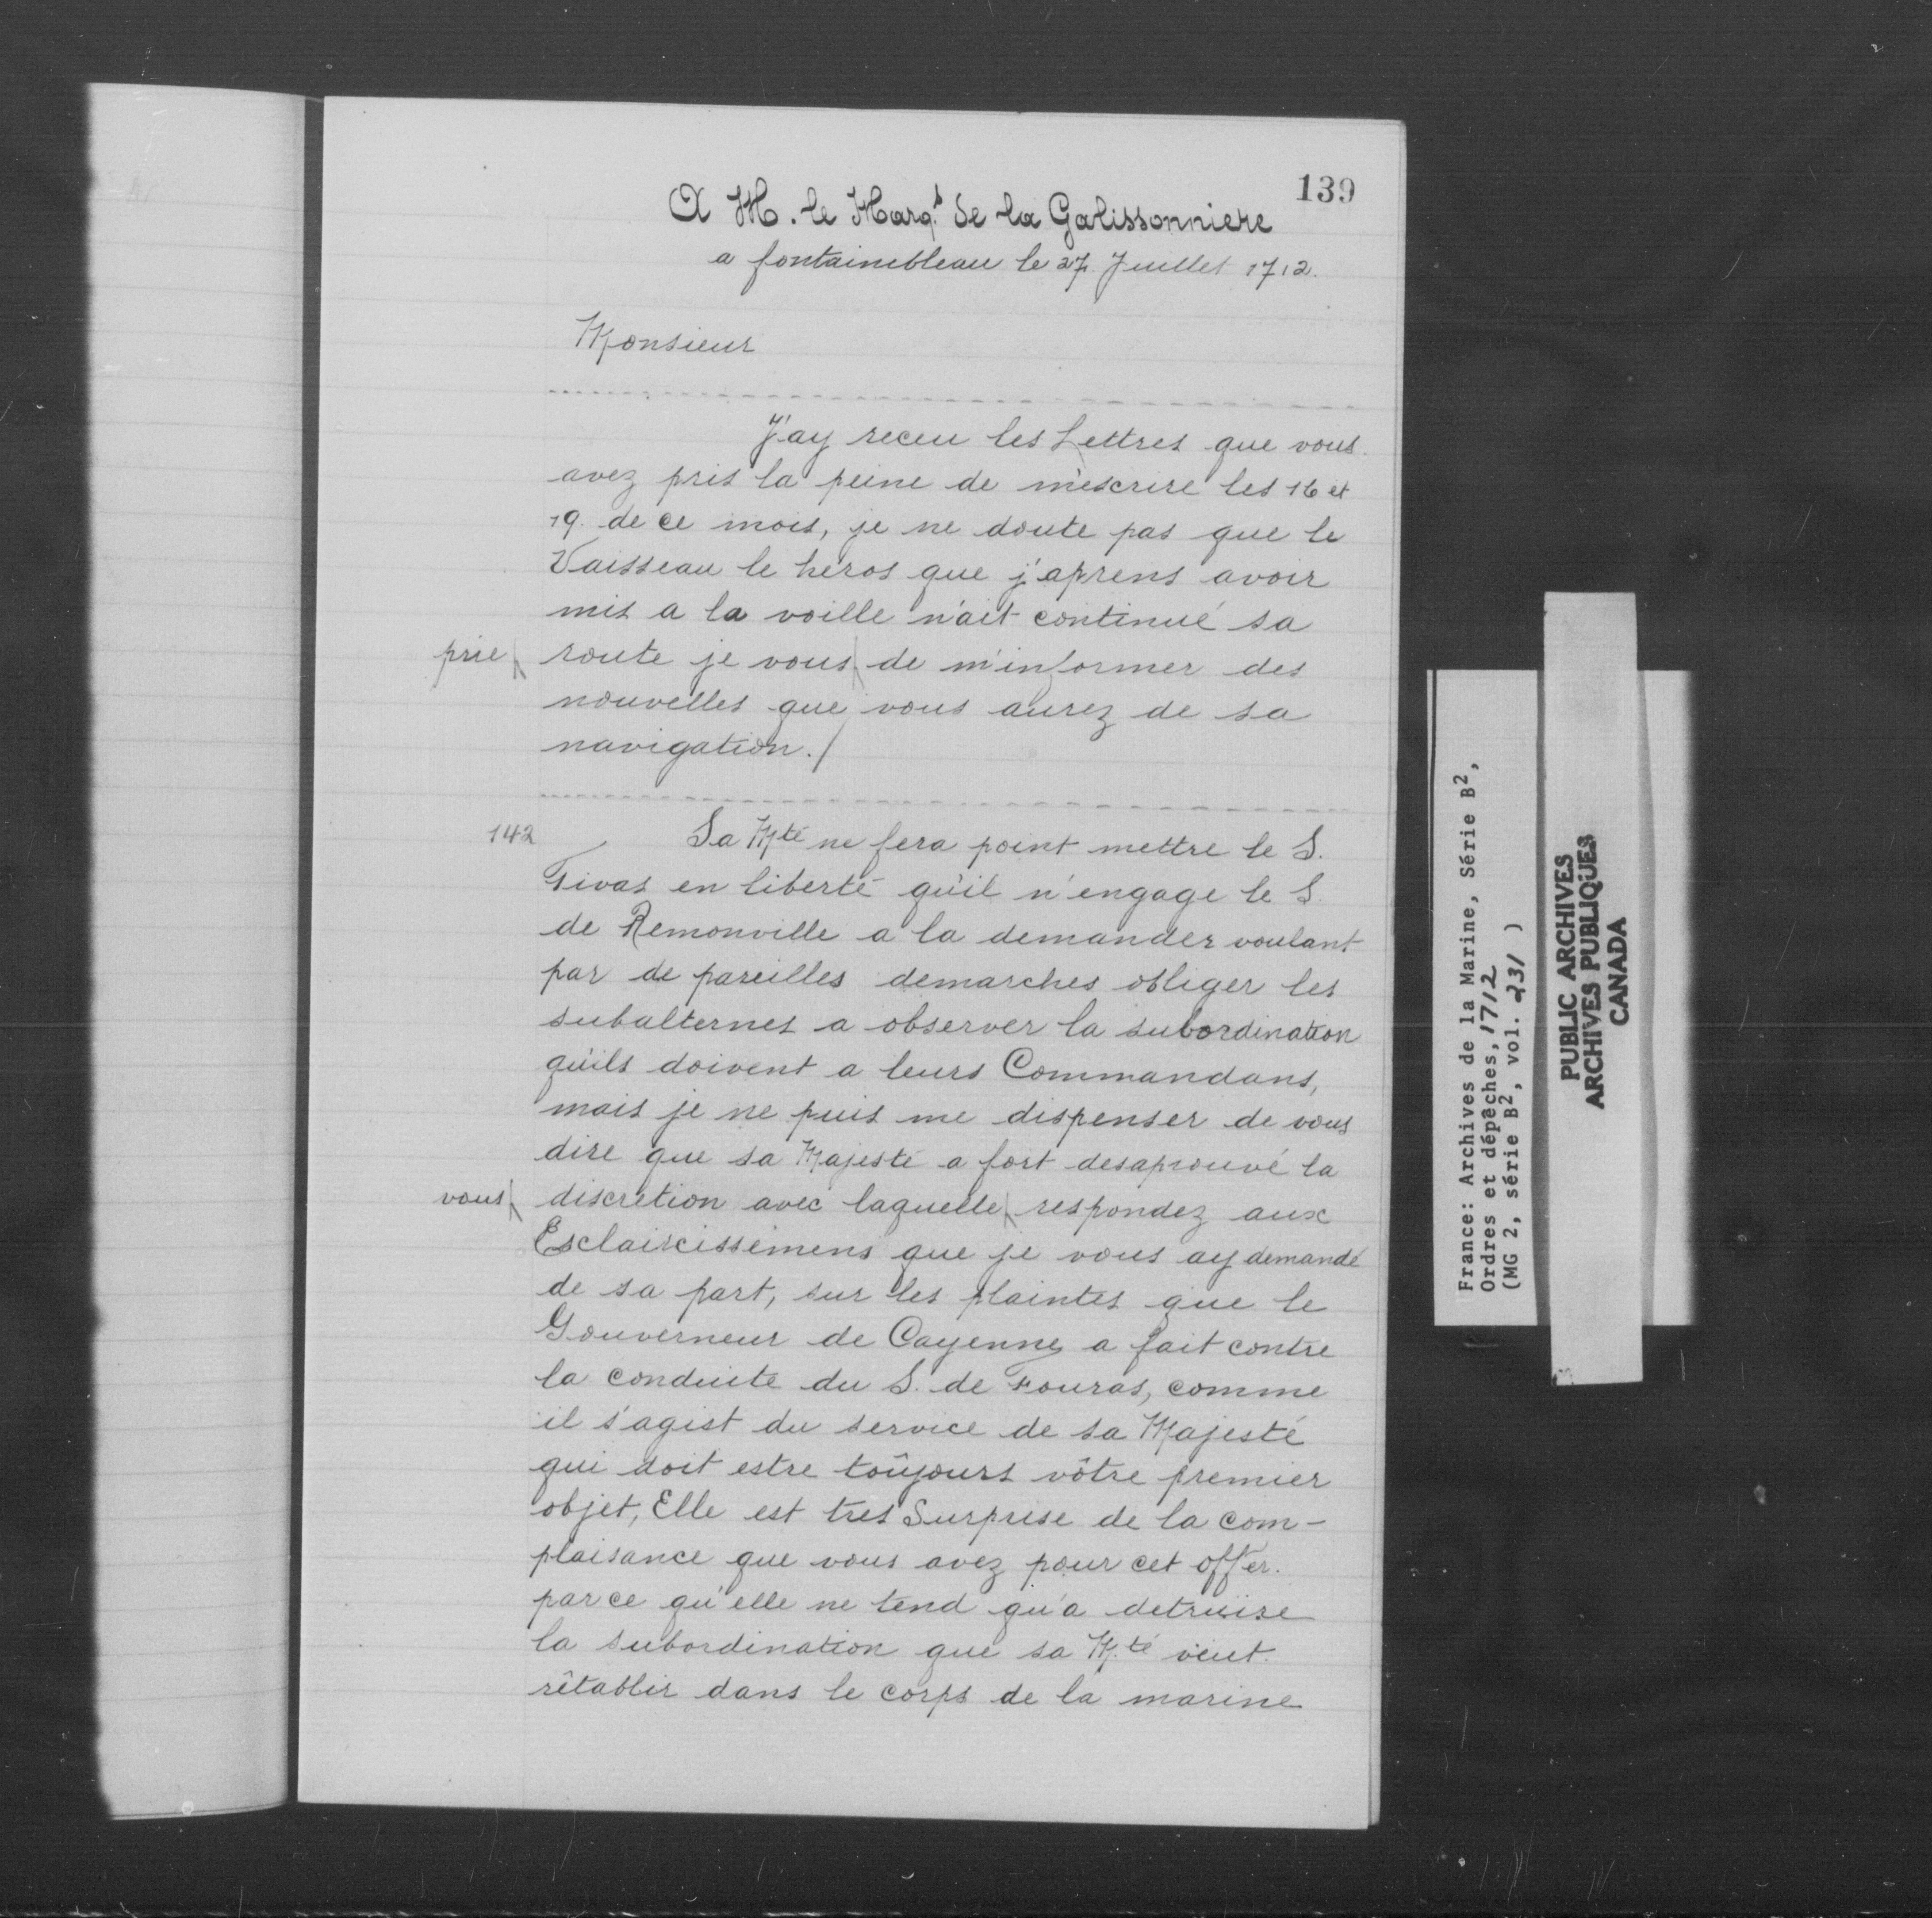 139
A M. le Marq.s de la Galissonniere
a fontainebleau le 27 Juillet 1712.
Monsieur
J'ay receu les Lettres que vous
avez pris la peine de m'escrire les 16 et
19. de ce mois, je ne doute pas que le
Vaisseau le héros que j'aprens avoir
mis a la voille n'ait continué sa
prie route je vous de m'informer des
nouvelles que vous aurez de sa
navigation./
142 Sa Mté ne fera point mettre le S.
Tivas en liberté qu'il n'engage le S.
de Remonville a la demander voulant
par de pareilles demarches obliger les
subalternes a observer la subordination
qu'ils doivent a leurs Commandans,
mais je ne puis me dispenser de vous
dire que sa Majesté a fort desaprouvé la
vous discretion avec laquelle respondez aux
Esclaircissemens que je vous ay demandé
de sa part, sur les plaintes que le
Gouverneur de Cayenne a fait contre
la conduite du S. de Fouras, comme
il s'agist du service de sa Majesté
qui doit estre toûjours vôtre premier
objet, Elle est tres Surprise de la com-
plaisance que vous avez pour cet offer.
parce qu'elle ne tend qu'a detruire
la subordination que sa M.té veut
rétablir dans le corps de la marine
France: Archives de la Marine, Série B2,
Ordres et dépêches, 1712
(MG 2, série B2, vol. 231 )
PUBLIC ARCHIVES
ARCHIVES PUBLIQUES
CANADA